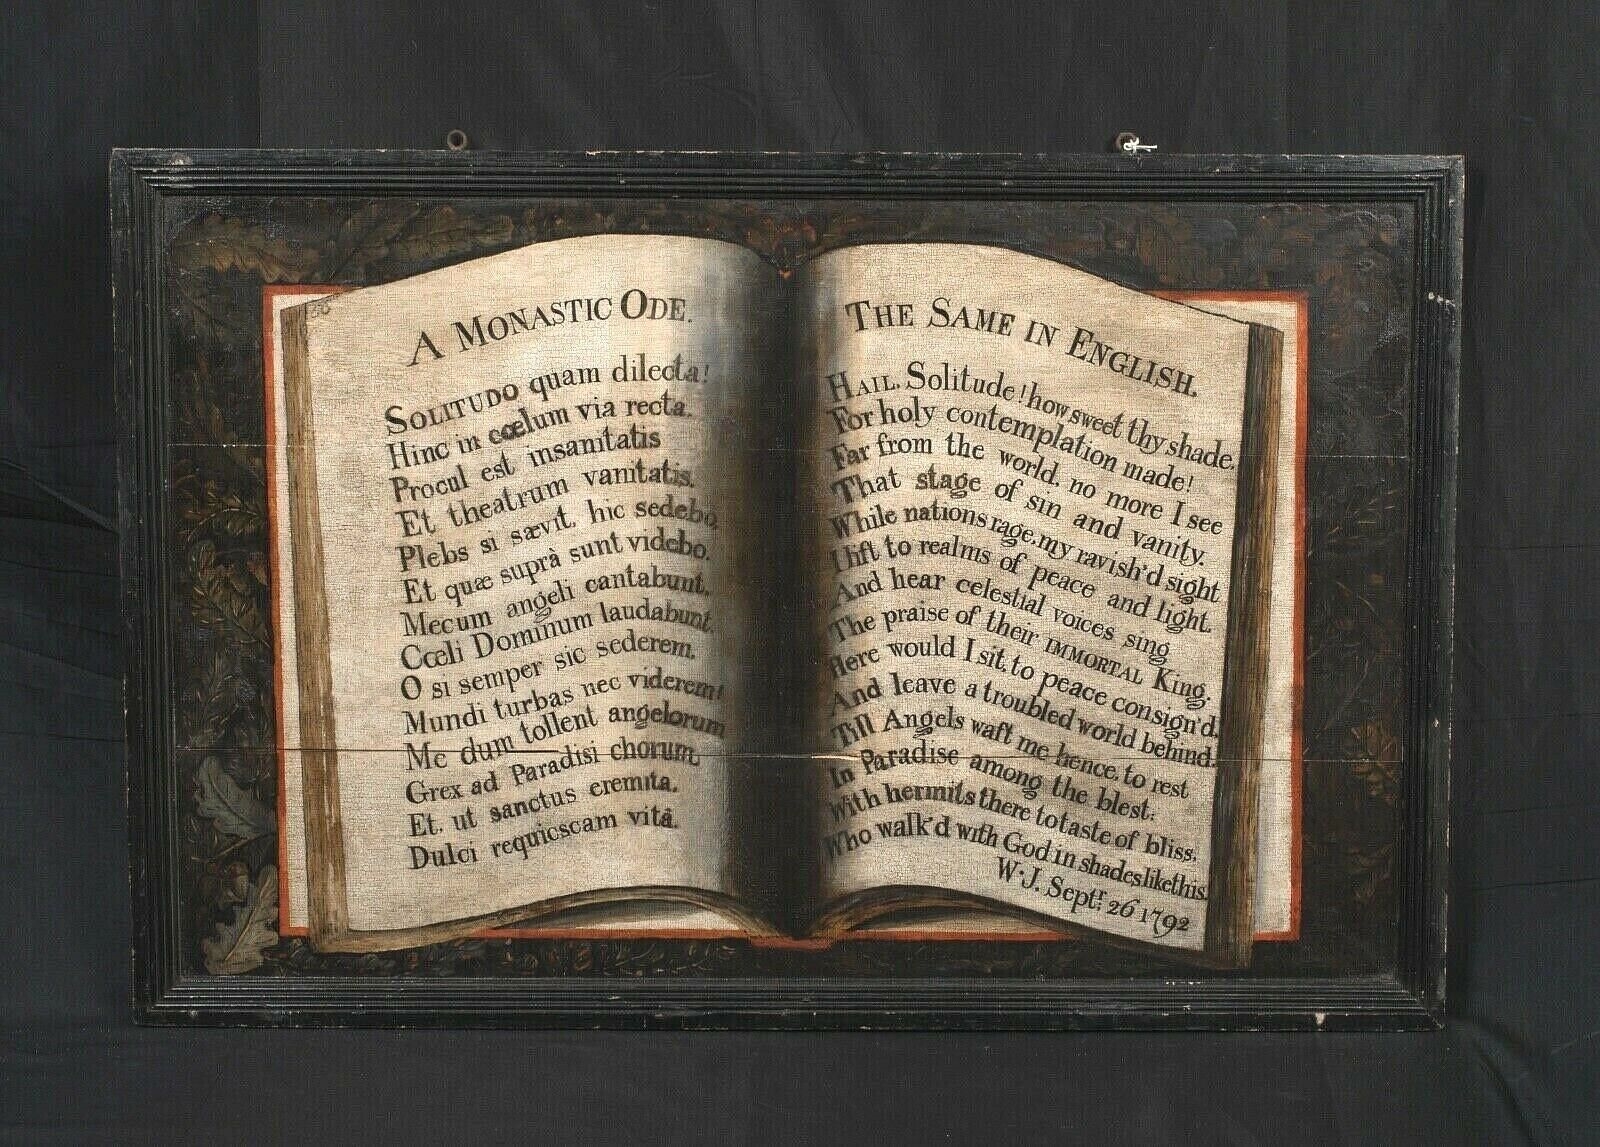 A MONASTIC ODE.
SOLITUDO quam dilecta!
Hinc in cœlum via recta.
Procul est insanitatis
Et theatrum vanitatis.
Plebs si sævit. hic sedebo,
Et quæ suprà sunt videbo.
Mecum angeli cantabunt.
Cœli Dominum laudabunt.
O si semper sic sederem.
Mundi turbas nec viderem!
Me dum tollent angelorum
Grex ad Paradisi chorum,
Et. ut sanctus eremita.
Dulci requiescam vitâ.
THE SAME IN ENGLISH.
HAIL. Solitude! how sweet thy shade.
For holy contemplation made!
Far from the world. no more I see
That stage of sin and vanity.
While nations rage. my ravish'd sight
I lift to realms of peace and light.
And hear celestial voices sing
The praise of their IMMORTAL King.
Here would I sit, to peace consign'd.
And leave a troubled world behind.
Till Angels waft me hence, to rest
In Paradise among the blest:
With hermits there to taste of bliss.
Who walk'd with God in shades like this.
W. J. Septr. 26 1792